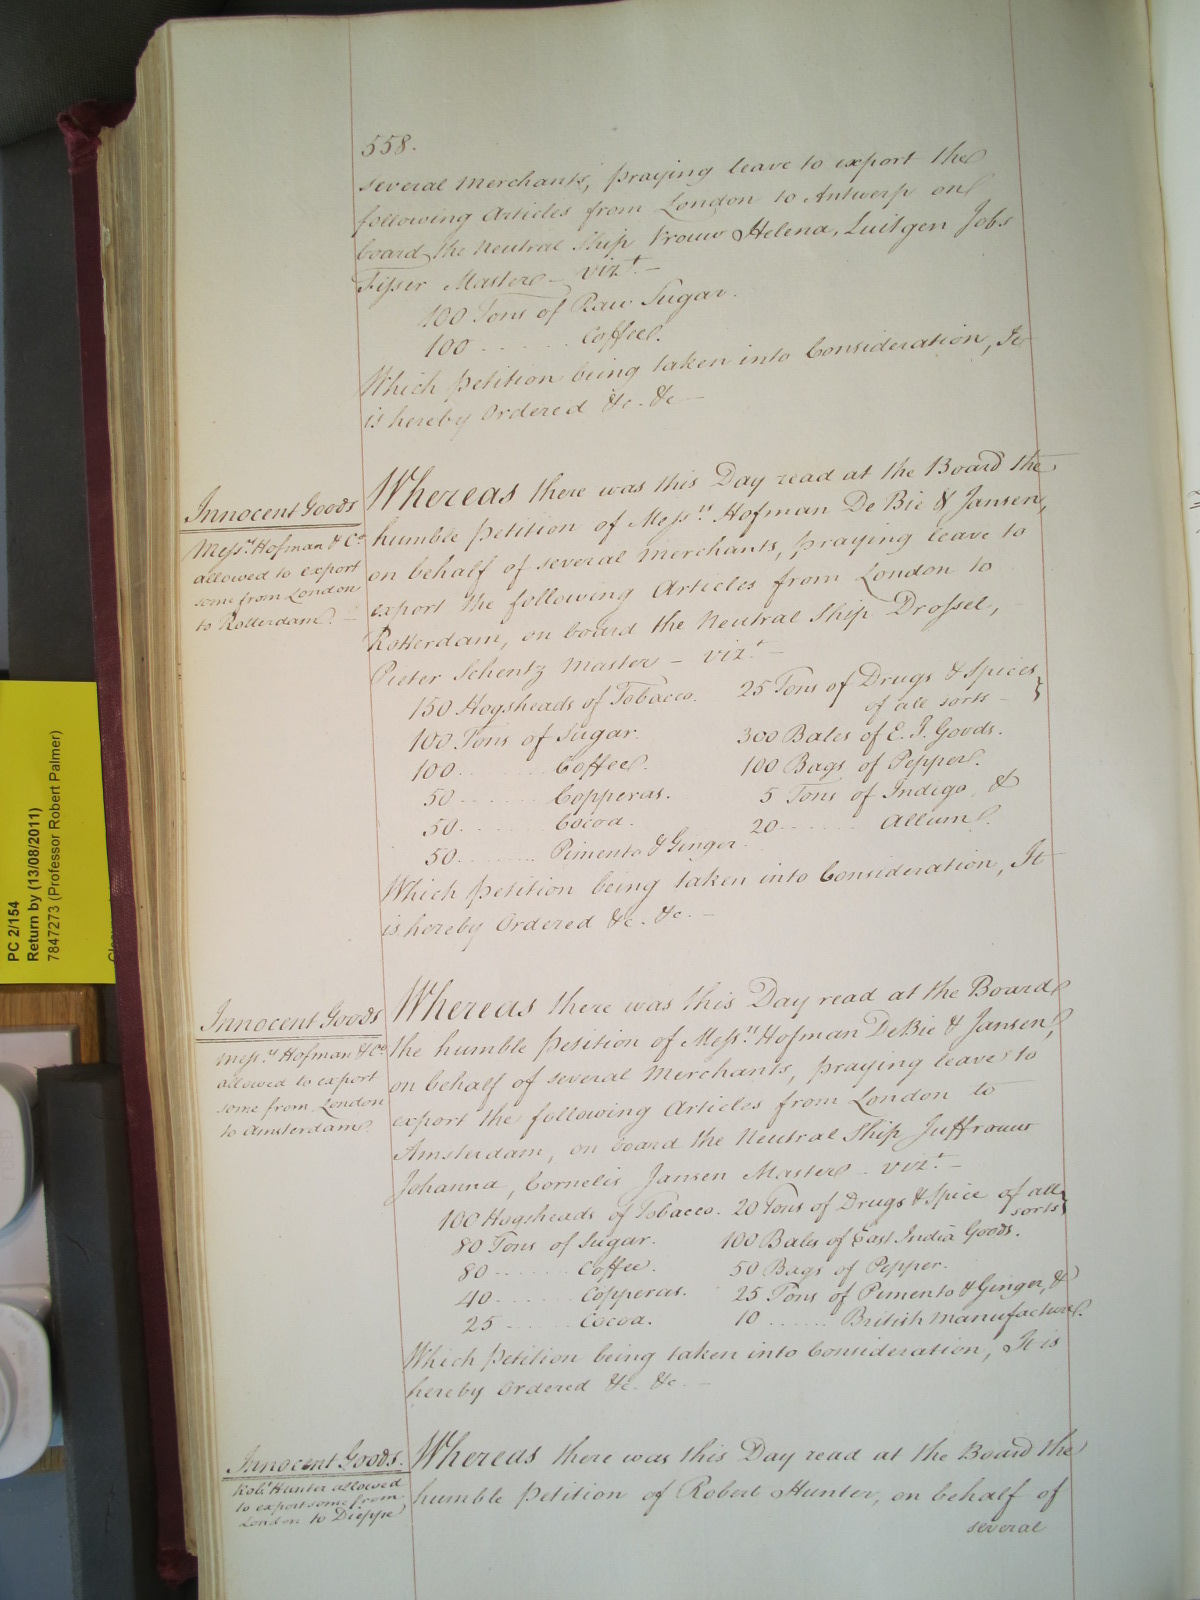 558.
several Merchants, praying leave to export the
following Articles from London to Antwerp on
board the Neutral Ship Vrouw Helena, Luitgen Jobs
Fisser Master - vizt. -
100 Tons of Raw Sugar.
100 ...... Coffee.
Which petition being taken into Consideration, It
is hereby Ordered &c. &c -
Innocent Goods
Messrs. Hofman & Co.
allowed to export
some from London
to Rotterdam. -
Whereas there was this Day read at the Board the
humble petition of Messrs. Hofman De Bie & Jansen,
on behalf of several Merchants, praying leave to
export the following Articles from London to
Rotterdam, on board the Neutral Ship Drossel,
Pieter Schentz Master - vizt. -
150 Hogsheads of Tobacco.
100 Tons of Sugar.
100 ...... Coffee.
50 ...... Copperas.
50 ...... Cocoa.
50 ...... Pimento & Ginger.
25 Tons of Drugs & Spices
of all sorts -
300 Bales of E. I. Goods.
100 Bags of Pepper.
5 Tons of Indigo, &
20 ...... Allum.
Which petition being taken into Consideration, It
is hereby Ordered &c. &c. -
Innocent Goods
Messrs. Hofman & Co.
allowed to export
some from London
to Amsterdam.
Whereas there was this Day read at the Board
the humble petition of Messrs. Hofman De Bie & Jansen,
on behalf of several Merchants, praying leave to
export the following Articles from London to
Amsterdam, on board the Neutral Ship Juffrouw
Johanna, Cornelis Jansen Master - vizt. -
100 Hogsheads of Tobacco.
80 Tons of Sugar.
80 ...... Coffee.
40 ...... Copperas.
25 ...... Cocoa.
20 Tons of Drugs & Spice of all
sorts
100 Bales of East India Goods.
50 Bags of Pepper.
25 Tons of Pimento & Ginger, &
10 ...... British Manufacture.
Which petition being taken into Consideration, It is
hereby Ordered &c. &c. -
Innocent Goods.
Robt. Hunter allowed
to export some from
London to Dieppe
Whereas there was this Day read at the Board the
humble Petition of Robert Hunter, on behalf of
several
PC 2/154
Return by (13/08/2011)
7847273 (Professor Robert Palmer)